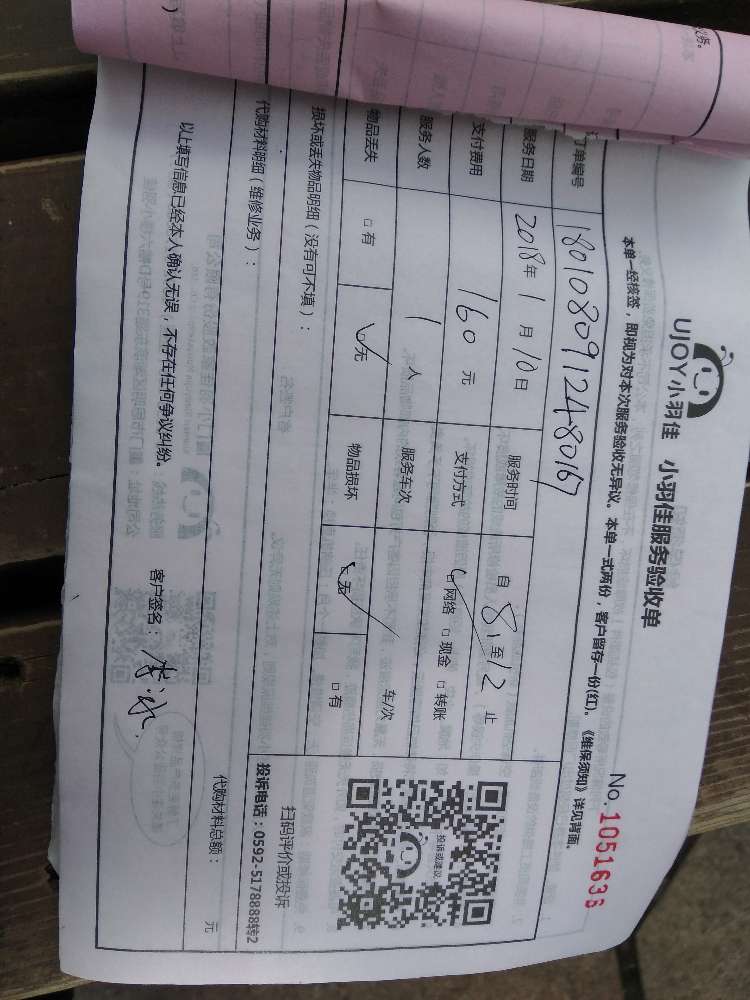 UJOY小羽佳 小羽佳服务验收单
No. 1051636
本单一经核签，即视为对本次服务验收无异议。本单一式两份，客户留存一份(红)。《维保须知》详见背面。
订单编号 1801080912480167
服务日期 2018年1月10日 服务时间 自8至12止
支付费用 160元 支付方式 ☑网络 □现金 □转账
服务人数 1人 服务车次 车/次
物品丢失 □有 ☑无 物品损坏 ☑无 □有
损坏或丢失物品明细（没有可不填）：
投诉或建议
扫码评价或投诉
投诉电话：0592-5178888转2
代购材料明细（维修业务）：
代购材料总额： 元
以上填写信息已经本人确认无误，不存在任何争议纠纷。 客户签名：